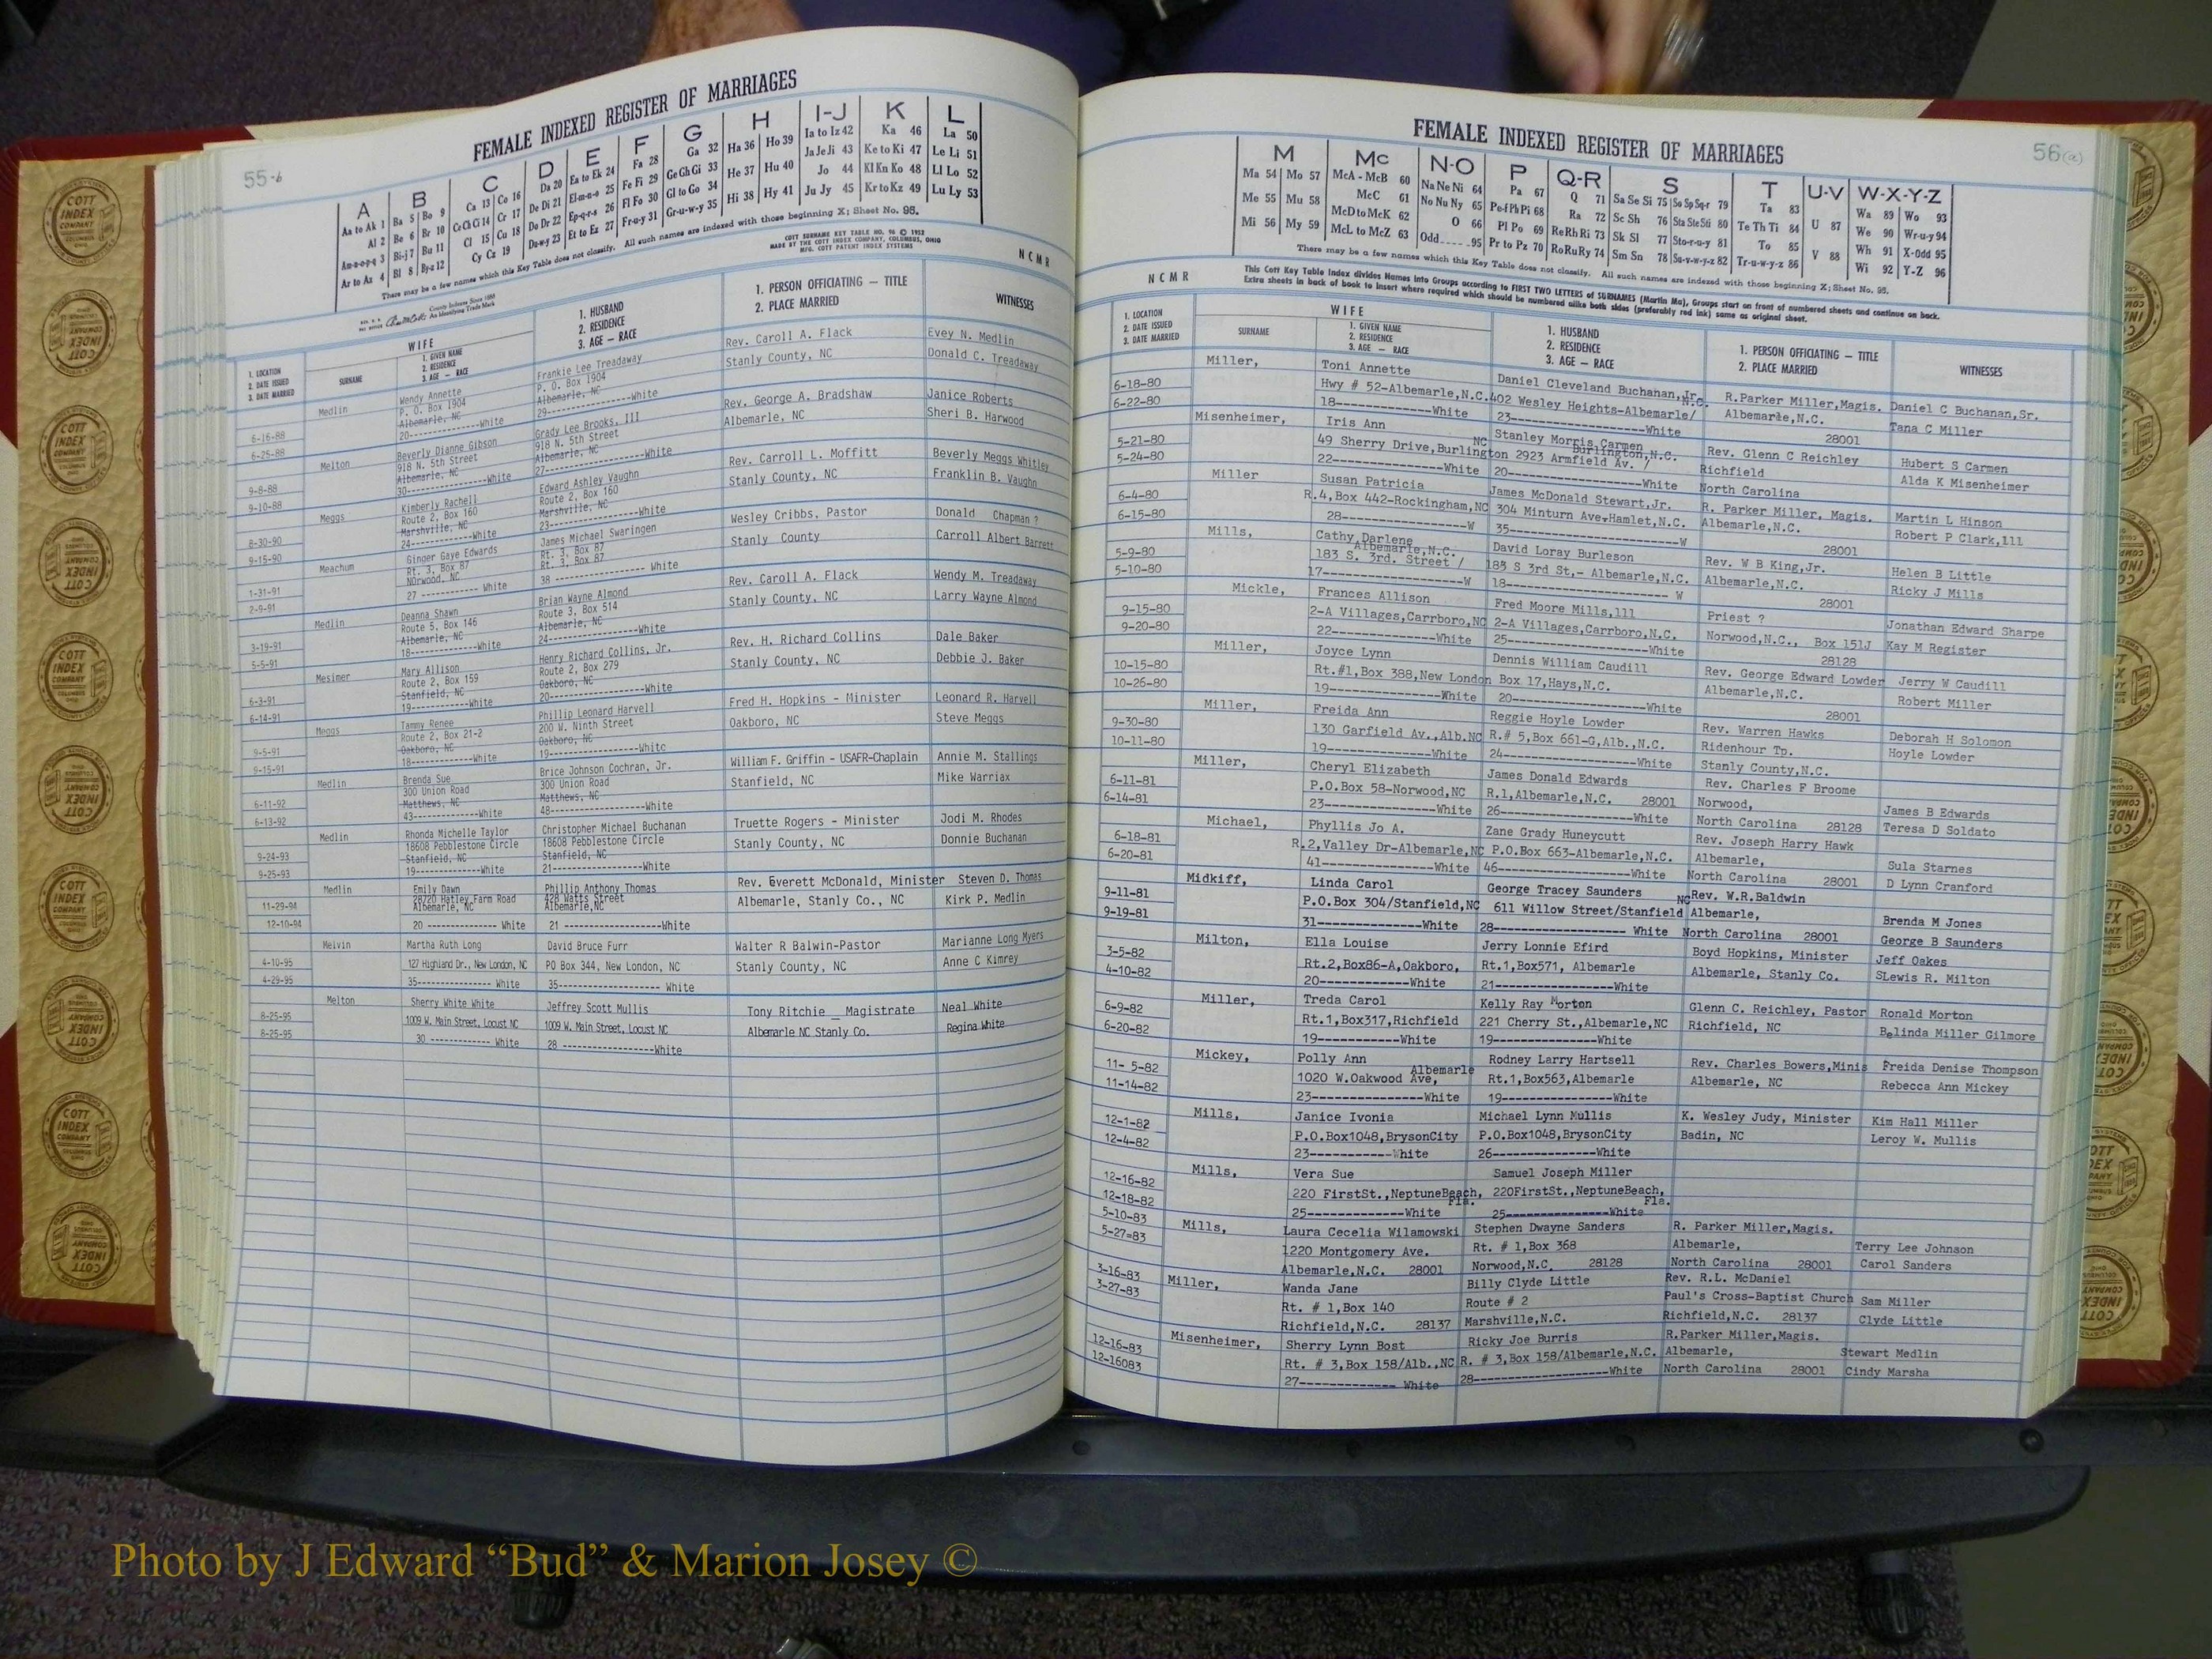 55-b
FEMALE INDEXED REGISTER OF MARRIAGES
A B C D E F G H I-J K L
Aa to Ak 1 Ba 5 Bo 9 Ca 13 Co 16 Da 20 Ea to Ek 24 Fa 28 Ga 32 Ha 36 Ho 39 Ia to Iz 42 Ka 46 La 50
Al 2 Be 6 Br 10 Ce Ch Ci 14 Cr 17 De Di 21 El-m-n-o 25 Fe Fi 29 Ge Gh Gi 33 He 37 Hu 40 Ja Je Ji 43 Ke to Ki 47 Le Li 51
Am-n-o-p-q 3 Bi-j 7 Bu 11 Cl 15 Cu 18 Do Dr 22 Ep-q-r-s 26 Fl Fo 30 Gl to Go 34 Hi 38 Hy 41 Jo 44 Kl Kn Ko 48 Ll Lo 52
Ar to Az 4 Bl 8 By-z 12 Cy Cz 19 Du-w-y 23 Et to Ez 27 Fr-u-y 31 Gr-u-w-y 35 Ju Jy 45 Kr to Kz 49 Lu Ly 53
There may be a few names which this Key Table does not classify. All such names are indexed with those beginning X; Sheet No. 95.
COTT SURNAME KEY TABLE NO. 96 © 1952
MADE BY THE COTT INDEX COMPANY, COLUMBUS, OHIO
MFG. COTT PATENT INDEX SYSTEMS
County Indexes Since 1888
An Identifying Trade Mark
N C M R
1. LOCATION
2. DATE ISSUED
3. DATE MARRIED
WIFE
SURNAME
1. GIVEN NAME
2. RESIDENCE
3. AGE — RACE
1. HUSBAND
2. RESIDENCE
3. AGE — RACE
1. PERSON OFFICIATING - TITLE
2. PLACE MARRIED
WITNESSES
Medlin Wendy Annette Frankie Lee Treadaway Rev. Caroll A. Flack Evey N. Medlin
P. O. Box 1904 P. O. Box 1904 Stanly County, NC Donald C. Treadaway
6-16-88 Albemarle, NC Albemarle, NC
6-25-88 20-------------White 29-------------White
Melton Beverly Dianne Gibson Grady Lee Brooks, III Rev. George A. Bradshaw Janice Roberts
918 N. 5th Street 918 N. 5th Street Albemarle, NC Sheri B. Harwood
9-8-88 Albemarle, NC Albemarle, NC
9-10-88 30-------------White 27-------------White
Meggs Kimberly Rachell Edward Ashley Vaughn Rev. Carroll L. Moffitt Beverly Meggs Whitley
Route 2, Box 160 Route 2, Box 160 Stanly County, NC Franklin B. Vaughn
8-30-90 Marshville, NC Marshville, NC
9-15-90 24-------------White 23-------------White
Meachum Ginger Gaye Edwards James Michael Swaringen Wesley Cribbs, Pastor Donald Chapman ?
Rt. 3, Box 87 Rt. 3, Box 87 Stanly County Carroll Albert Barrett
1-31-91 NOrwood, NC Rt. 3, Box 87
2-9-91 27 ----------- White 38 ------------- White
Medlin Deanna Shawn Brian Wayne Almond Rev. Caroll A. Flack Wendy M. Treadaway
Route 5, Box 146 Route 3, Box 514 Stanly County, NC Larry Wayne Almond
3-19-91 Albemarle, NC Albemarle, NC
5-5-91 18-------------White 24-------------White
Mesimer Mary Allison Henry Richard Collins, Jr. Rev. H. Richard Collins Dale Baker
Route 2, Box 159 Route 2, Box 279 Stanly County, NC Debbie J. Baker
6-3-91 Stanfield, NC Oakboro, NC
6-14-91 19-------------White 20-------------White
Meggs Tammy Renee Phillip Leonard Harvell Fred H. Hopkins - Minister Leonard R. Harvell
Route 2, Box 21-2 200 W. Ninth Street Oakboro, NC Steve Meggs
9-5-91 Oakboro, NC Oakboro, NC
9-15-91 18-------------White 19-------------White
Medlin Brenda Sue Brice Johnson Cochran, Jr. William F. Griffin - USAFR-Chaplain Annie M. Stallings
300 Union Road 300 Union Road Stanfield, NC Mike Warriax
6-11-92 Matthews, NC Matthews, NC
6-13-92 43-------------White 48-------------White
Medlin Rhonda Michelle Taylor Christopher Michael Buchanan Truette Rogers - Minister Jodi M. Rhodes
18608 Pebblestone Circle 18608 Pebblestone Circle Stanly County, NC Donnie Buchanan
9-24-93 Stanfield, NC Stanfield, NC
9-25-93 19-------------White 21-------------White
Medlin Emily Dawn Phillip Anthony Thomas Rev. Everett McDonald, Minister Steven D. Thomas
11-29-94 28720 Hatley Farm Road 428 Watts Street Albemarle, Stanly Co., NC Kirk P. Medlin
Albemarle, NC Albemarle,NC
12-10-94 20 ------------- White 21 -----------------White
Melvin Martha Ruth Long David Bruce Furr Walter R Balwin-Pastor Marianne Long Myers
4-10-95 127 Highland Dr., New London, NC PO Box 344, New London, NC Stanly County, NC Anne C Kimrey
4-29-95 35------------- White 35-------------- White
Melton Sherry White White Jeffrey Scott Mullis Tony Ritchie _ Magistrate Neal White
8-25-95 1009 W. Main Street, Locust NC 1009 W. Main Street, Locust NC Albemarle NC Stanly Co. Regina White
8-25-95 30 ------------- White 28 -----------------White
56(a)
FEMALE INDEXED REGISTER OF MARRIAGES
M Mc N-O P Q-R S T U-V W-X-Y-Z
Ma 54 Mo 57 McA - McB 60 Na Ne Ni 64 Pa 67 Q 71 Sa Se Si 75 So Sp Sq-r 79 Ta 83 Wa 89 Wo 93
Me 55 Mu 58 McC 61 No Nu Ny 65 Pe-f Ph Pi 68 Ra 72 Sc Sh 76 Sta Ste Sti 80 Te Th Ti 84 U 87 We 90 Wr-u-y 94
Mi 56 My 59 McD to McK 62 O 66 Pl Po 69 Re Rh Ri 73 Sk Sl 77 Sto-r-u-y 81 To 85 Wh 91 X-Odd 95
McL to McZ 63 Odd 95 Pr to Pz 70 Ro Ru Ry 74 Sm Sn 78 Su-v-w-y-z 82 Tr-u-w-y-z 86 V 88 Wi 92 Y-Z 96
There may be a few names which this Key Table does not classify. All such names are indexed with those beginning X; Sheet No. 95.
This Cott Key Table Index divides Names into Groups according to FIRST TWO LETTERS of SURNAMES (Martin Ma), Groups start on front of numbered sheets and continue on back.
Extra sheets in back of book to insert where required which should be numbered alike both sides (preferably red ink) same as original sheet.
N C M R
1. LOCATION
2. DATE ISSUED
3. DATE MARRIED
WIFE
SURNAME
1. GIVEN NAME
2. RESIDENCE
3. AGE — RACE
1. HUSBAND
2. RESIDENCE
3. AGE — RACE
1. PERSON OFFICIATING - TITLE
2. PLACE MARRIED
WITNESSES
Miller, Toni Annette Daniel Cleveland Buchanan,Jr. R.Parker Miller,Magis. Daniel C Buchanan,Sr.
6-18-80 Hwy # 52-Albemarle,N.C. 402 Wesley Heights-Albemarle/ N.C. Albemarle,N.C. Tana C Miller
6-22-80 18-------------White 23-----------------White 28001
Misenheimer, Iris Ann Stanley Morris Carmen Rev. Glenn C Reichley Hubert S Carmen
5-21-80 49 Sherry Drive,Burlington NC 2923 Armfield Av. / Burlington,N.C. Richfield Alda K Misenheimer
5-24-80 22---------------White 20-----------------White North Carolina
Miller Susan Patricia James McDonald Stewart,Jr. R. Parker Miller, Magis. Martin L Hinson
6-4-80 R.4,Box 442-Rockingham,NC 304 Minturn Ave-Hamlet,N.C. Albemarle,N.C. Robert P Clark,111
6-15-80 28----------------W 35---------------------W 28001
Mills, Cathy Darlene David Loray Burleson Rev. W B King,Jr. Helen B Little
5-9-80 183 S. 3rd. Street / Albemarle,N.C. 183 S 3rd St,- Albemarle,N.C. Albemarle,N.C. Ricky J Mills
5-10-80 17-----------------W 18--------------------- W 28001
Mickle, Frances Allison Fred Moore Mills,111 Priest ? Jonathan Edward Sharpe
9-15-80 2-A Villages,Carrboro,NC 2-A Villages,Carrboro,N.C. Norwood,N.C., Box 151J Kay M Register
9-20-80 22---------------White 25------------------White 28128
Miller, Joyce Lynn Dennis William Caudill Rev. George Edward Lowder Jerry W Caudill
10-15-80 Rt.#1,Box 388,New London Box 17,Hays,N.C. Albemarle,N.C. Robert Miller
10-26-80 19----------------White 20------------------White 28001
Miller, Freida Ann Reggie Hoyle Lowder Rev. Warren Hawks Deborah H Solomon
9-30-80 130 Garfield Av.,Alb.NC R.# 5,Box 661-G,Alb.,N.C. Ridenhour Tp. Hoyle Lowder
10-11-80 19---------------White 24------------------White Stanly County,N.C.
Miller, Cheryl Elizabeth James Donald Edwards Rev. Charles F Broome James B Edwards
6-11-81 P.O.Box 58-Norwood,NC R.1,Albemarle,N.C. 28001 Norwood, Teresa D Soldato
6-14-81 23----------------White 26------------------White North Carolina 28128
Michael, Phyllis Jo A. Zane Grady Huneycutt Rev. Joseph Harry Hawk Sula Starnes
6-18-81 R.2,Valley Dr-Albemarle,NC P.O.Box 663-Albemarle,N.C. Albemarle, D Lynn Cranford
6-20-81 41---------------White 46------------------White North Carolina 28001
Midkiff, Linda Carol George Tracey Saunders Rev. W.R.Baldwin Brenda M Jones
9-11-81 P.O.Box 304/Stanfield,NC 611 Willow Street/Stanfield NC Albemarle, George B Saunders
9-19-81 31---------------White 28------------------ White North Carolina 28001
Milton, Ella Louise Jerry Lonnie Efird Boyd Hopkins, Minister Jeff Oakes
3-5-82 Rt.2,Box86-A,Oakboro, Rt.1,Box571, Albemarle Albemarle, Stanly Co. SLewis R. Milton
4-10-82 20-------------White 21---------------White
Miller, Treda Carol Kelly Ray Morton Glenn C. Reichley, Pastor Ronald Morton
6-9-82 Rt.1,Box317,Richfield 221 Cherry St.,Albemarle,NC Richfield, NC Belinda Miller Gilmore
6-20-82 19------------White 19---------------White
Mickey, Polly Ann Rodney Larry Hartsell Rev. Charles Bowers,Minis Freida Denise Thompson
11- 5-82 1020 W.Oakwood Ave, Albemarle Rt.1,Box563,Albemarle Albemarle, NC Rebecca Ann Mickey
11-14-82 23----------------White 19----------------White
Mills, Janice Ivonia Michael Lynn Mullis K. Wesley Judy, Minister Kim Hall Miller
12-1-82 P.O.Box1048,BrysonCity P.O.Box1048,BrysonCity Badin, NC Leroy W. Mullis
12-4-82 23------------White 26---------------White
Mills, Vera Sue Samuel Joseph Miller
12-16-82 220 FirstSt.,NeptuneBeach, Fla. 220FirstSt.,NeptuneBeach, Fla.
12-18-82 25--------------White 25----------------White
5-10-83 Mills, Laura Cecelia Wilamowski Stephen Dwayne Sanders R. Parker Miller,Magis. Terry Lee Johnson
5-27=83 1220 Montgomery Ave. Rt. # 1,Box 368 Albemarle, Carol Sanders
Albemarle,N.C. 28001 Norwood,N.C. 28128 North Carolina 28001
3-16-83 Miller, Wanda Jane Billy Clyde Little Rev. R.L. McDaniel
3-27-83 Rt. # 1,Box 140 Route # 2 Paul's Cross-Baptist Church Sam Miller
Richfield,N.C. 28137 Marshville,N.C. Richfield,N.C. 28137 Clyde Little
12-16-83 Misenheimer, Sherry Lynn Bost Ricky Joe Burris R.Parker Miller,Magis. Stewart Medlin
12-16083 Rt. # 3,Box 158/Alb.,NC R. # 3,Box 158/Albemarle,N.C. Albemarle, Cindy Marsha
27-------------- White 28------------------White North Carolina 28001
COTT INDEX COMPANY
COLUMBUS OHIO
Photo by J Edward “Bud” & Marion Josey ©